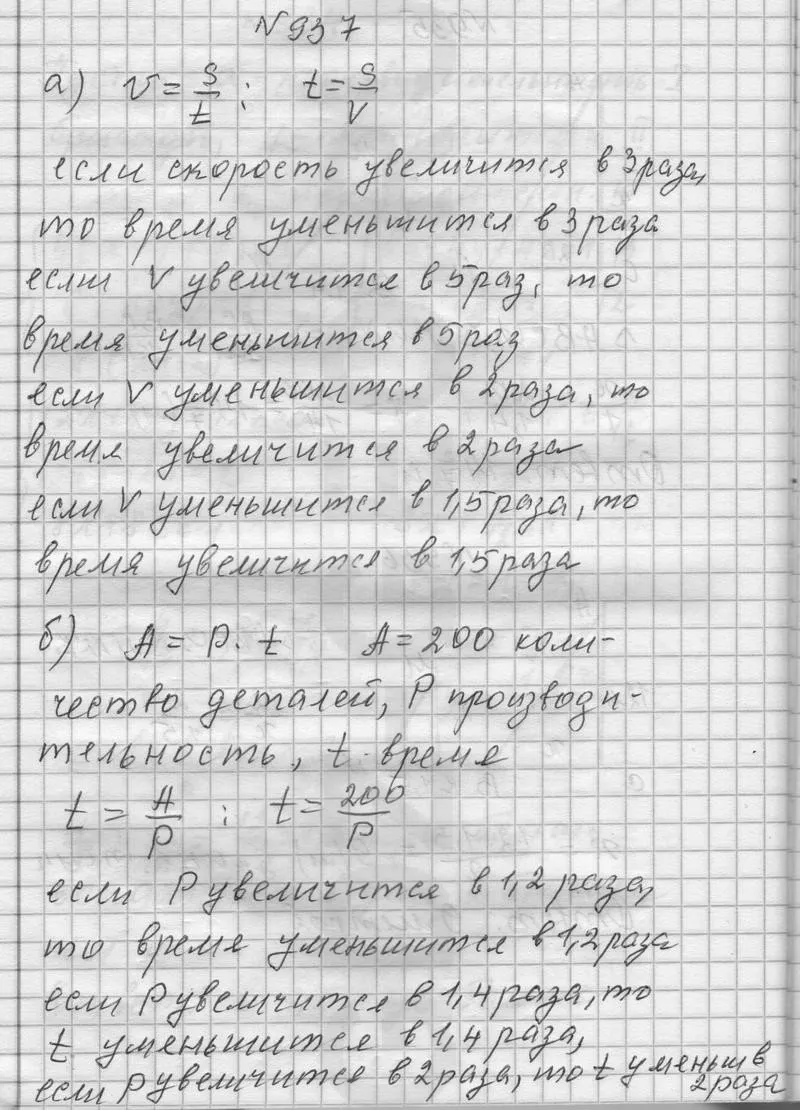 N937
а) v = S/t ; t = S/V
если скорость увеличится в 3 раза,
то время уменьшится в 3 раза
если V увеличится в 5 раз, то
время уменьшится в 5 раз
если V уменьшится в 2 раза, то
время увеличится в 2 раза
если V уменьшится в 1,5 раза, то
время увеличится в 1,5 раза
б) A = P · t A = 200 коли-
чество деталей, P производи-
тельность, t - время
t = A/P ; t = 200/P
если P увеличится в 1,2 раза,
то время уменьшится в 1,2 раза
если P увеличится в 1,4 раза, то
t уменьшится в 1,4 раза,
если P увеличится в 2 раза, то t уменьш в
2 раза